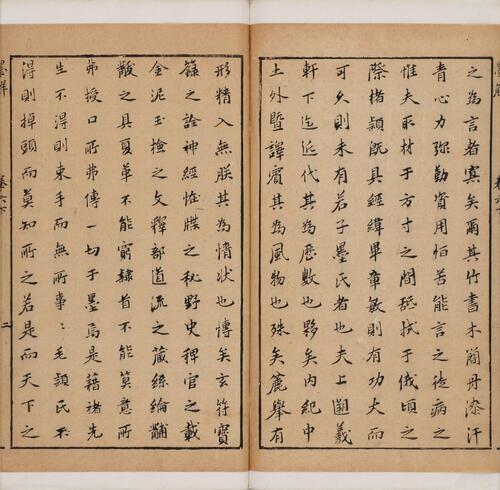 之為言者寞矣爾其竹書木簡漆汗
青心力弥勤資用怕苦能言之徒病之
惟夫取材于方寸之間舐拭于俄頃之
際楮穎既具經緯畢章敏則有功大而
可久則未有若子墨氏者也夫上遡羲
軒下迄近代其為歷數也夥矣內紀中
土外暨譯賓其為風物也殊矣麄舉有
形精入無朕其為情狀也愽矣玄符寶
籙之詮神經恠牒之秘野史稗官之載
金泥玉撿之文釋部道流之藏絲綸黼
黻之具夏革不能窮隸首不能算意所
弗授口所弗傳一切于墨焉是藉諸先
生不得則束手而無所事〻毛穎氏不
得則掉頭而莫知所之若是而天下之
卷六下
二